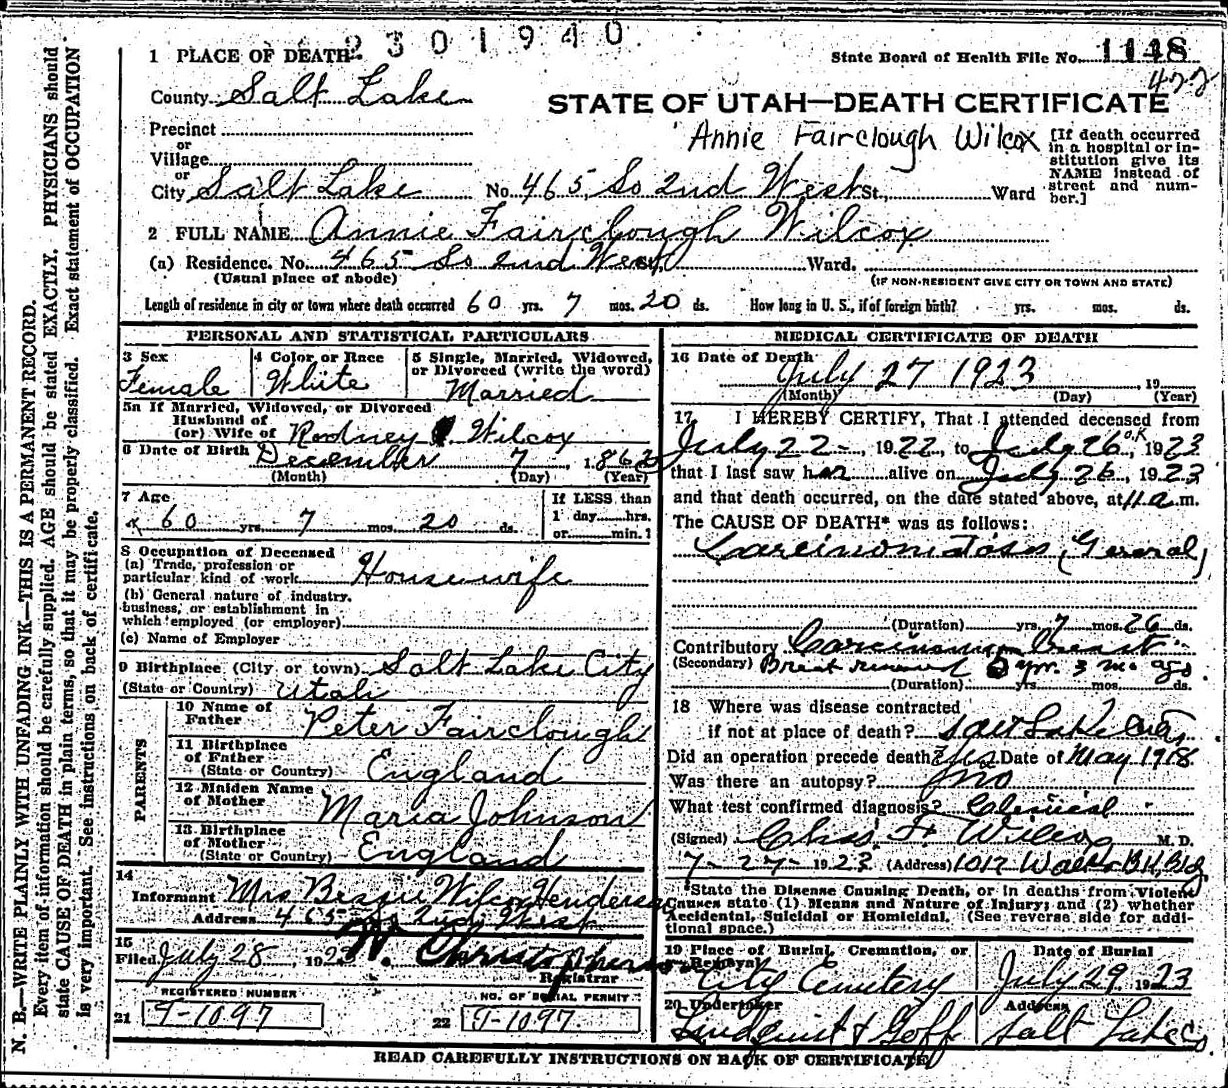 2301940
1 PLACE OF DEATH
State Board of Health File No. 1148
422
County Salt Lake
STATE OF UTAH—DEATH CERTIFICATE
Precinct
or
Village
or
City Salt Lake No. 465 So 2nd West St., Ward
Annie Fairclough Wilcox
[If death occurred in a hospital or institution give its NAME instead of street and number.]
2 FULL NAME Annie Fairclough Wilcox
(a) Residence. No. 465 So 2nd West Ward.
(Usual place of abode)
(IF NON-RESIDENT GIVE CITY OR TOWN AND STATE)
Length of residence in city or town where death occurred 60 yrs. 7 mos. 20 ds. How long in U. S., if of foreign birth? yrs. mos. ds.
PERSONAL AND STATISTICAL PARTICULARS
3 Sex Female
4 Color or Race White
5 Single, Married, Widowed, or Divorced (write the word) Married
5a If Married, Widowed, or Divorced
Husband of
(or) Wife of Rodney Wilcox
6 Date of Birth December 7, 1862
(Month) (Day) (Year)
7 Age
60 yrs. 7 mos. 20 ds.
If LESS than
1 day......hrs.
or......min.?
8 Occupation of Deceased
(a) Trade, profession or
particular kind of work Housewife
(b) General nature of industry,
business, or establishment in
which employed (or employer)
(c) Name of Employer
9 Birthplace (City or town) Salt Lake City
(State or Country) Utah
PARENTS
10 Name of
Father Peter Fairclough
11 Birthplace
of Father
(State or Country) England
12 Maiden Name
of Mother Maria Johnson
13 Birthplace
of Mother
(State or Country) England
14
Informant Mrs Bessie Wilcox Henderson
Address 465 So 2nd West
15
Filed July 28, 1923 W. Christopherson
Registrar
REGISTERED NUMBER
21 T-1097
NO. OF BURIAL PERMIT
22 T-1097
MEDICAL CERTIFICATE OF DEATH
16 Date of Death July 27 1923, 19
(Month) (Day) (Year)
17 I HEREBY CERTIFY, That I attended deceased from
July 22, 1922, to July 26 O.K, 1923
that I last saw her alive on July 26, 1923
and that death occurred, on the date stated above, at 11 a.m.
The CAUSE OF DEATH* was as follows:
Carcinomatosis (General)
(Duration) yrs. 7 mos. 26 ds.
Contributory Carcinoma breast
(Secondary) Breast removed 5 yrs. 3 mo ago
(Duration) yrs. mos. ds.
18 Where was disease contracted
if not at place of death? Salt Lake City
Did an operation precede death? Yes Date of May 1918
Was there an autopsy? no
What test confirmed diagnosis? Clinical
(Signed) Chas. F. Wilcox M. D.
7-27-1923 (Address) 1012 Walker Bk. Bldg.
*State the Disease Causing Death, or in deaths from Violent
Causes state (1) Means and Nature of Injury; and (2) whether
Accidental, Suicidal or Homicidal. (See reverse side for additional space.)
19 Place of Burial, Cremation, or
Removal City Cemetery
Date of Burial
July 29 1923
20 Undertaker
Lindquist & Goff
Address
Salt Lake
READ CAREFULLY INSTRUCTIONS ON BACK OF CERTIFICATE
N. B.—WRITE PLAINLY WITH UNFADING INK—THIS IS A PERMANENT RECORD.
Every item of information should be carefully supplied. AGE should be stated EXACTLY. PHYSICIANS should
state CAUSE OF DEATH in plain terms, so that it may be properly classified. Exact statement of OCCUPATION
is very important. See instructions on back of certificate.